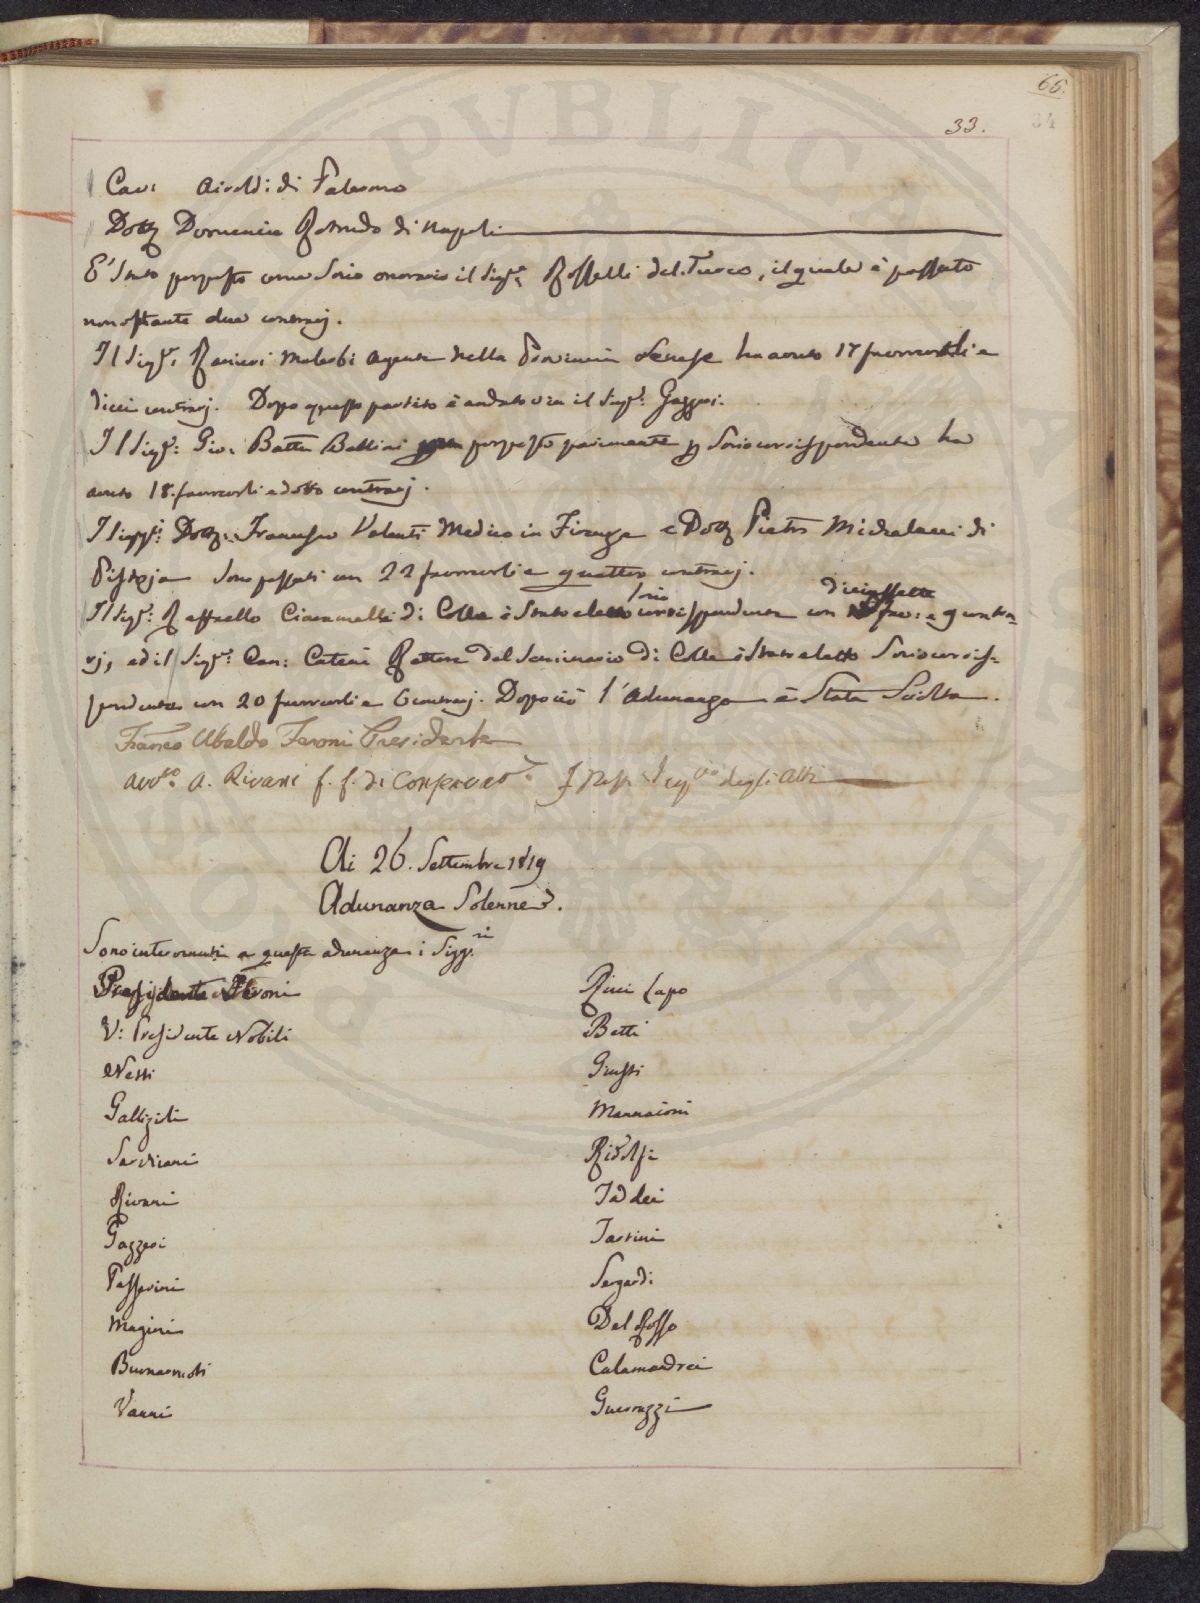 65.
33.
34
Cav: Airoldi di Palermo
Dott Domenico Cotrudo di Napoli
E' stato proposto come Socio onorario il Sig.e Rosselli del Turco, il quale è passato
nonostante due contrarj.
Il Sig.r Ranieri Malesbi Agente nella Provincia Senese ha avuto 17 favorevoli e
dieci contrarj. Dopo questo partito è andato via il Sig.r Gazzeri.
Il Sig.r: Gio: Batta Bellini proposto parimente p Socio corrispondente ha
avuto 18. favorevoli ed otto contrarj.
I Sigg.i Dott: Francesco Valenti Medico in Firenze e Dott Pietro Michelacci di
Pistoja sono passati con 22 favorevoli e quattro contrarj.
Socio
diciassette
Il Sig.r: Raffaello Ciaramelli di Colle è stato eletto corrispondente con fav: e 9 contra-
rj, ed il Sig.r: Can: Cateni Rettore del Seminario di Colle è stato eletto Socio corris-
pondente con 20 favorevoli e 6 contrarj. Dopo ciò l'Adunanza è stata Sciolta.
Franco Ubaldo Feroni Presidente
Avv.to A. Rivani f. f. di Conservat.e Seg.rio degli Atti
Ai 26. Settembre 1819
Adunanza Solenne.
Sono intervenuti a questa adunanza i Sigg.ri
Presidente Feroni
V: Presidente Nobili
Nesti
Gallizioli
Sarchiani
Rivani
Gazzeri
Passerini
Magini
Buonarroti
Vanni
Ricci Lapo
Betti
Giusti
Mannaioni
Ridolfi
Taddei
Tartini
Sergardi
Del Rosso
Calamandrei
Guerrazzi